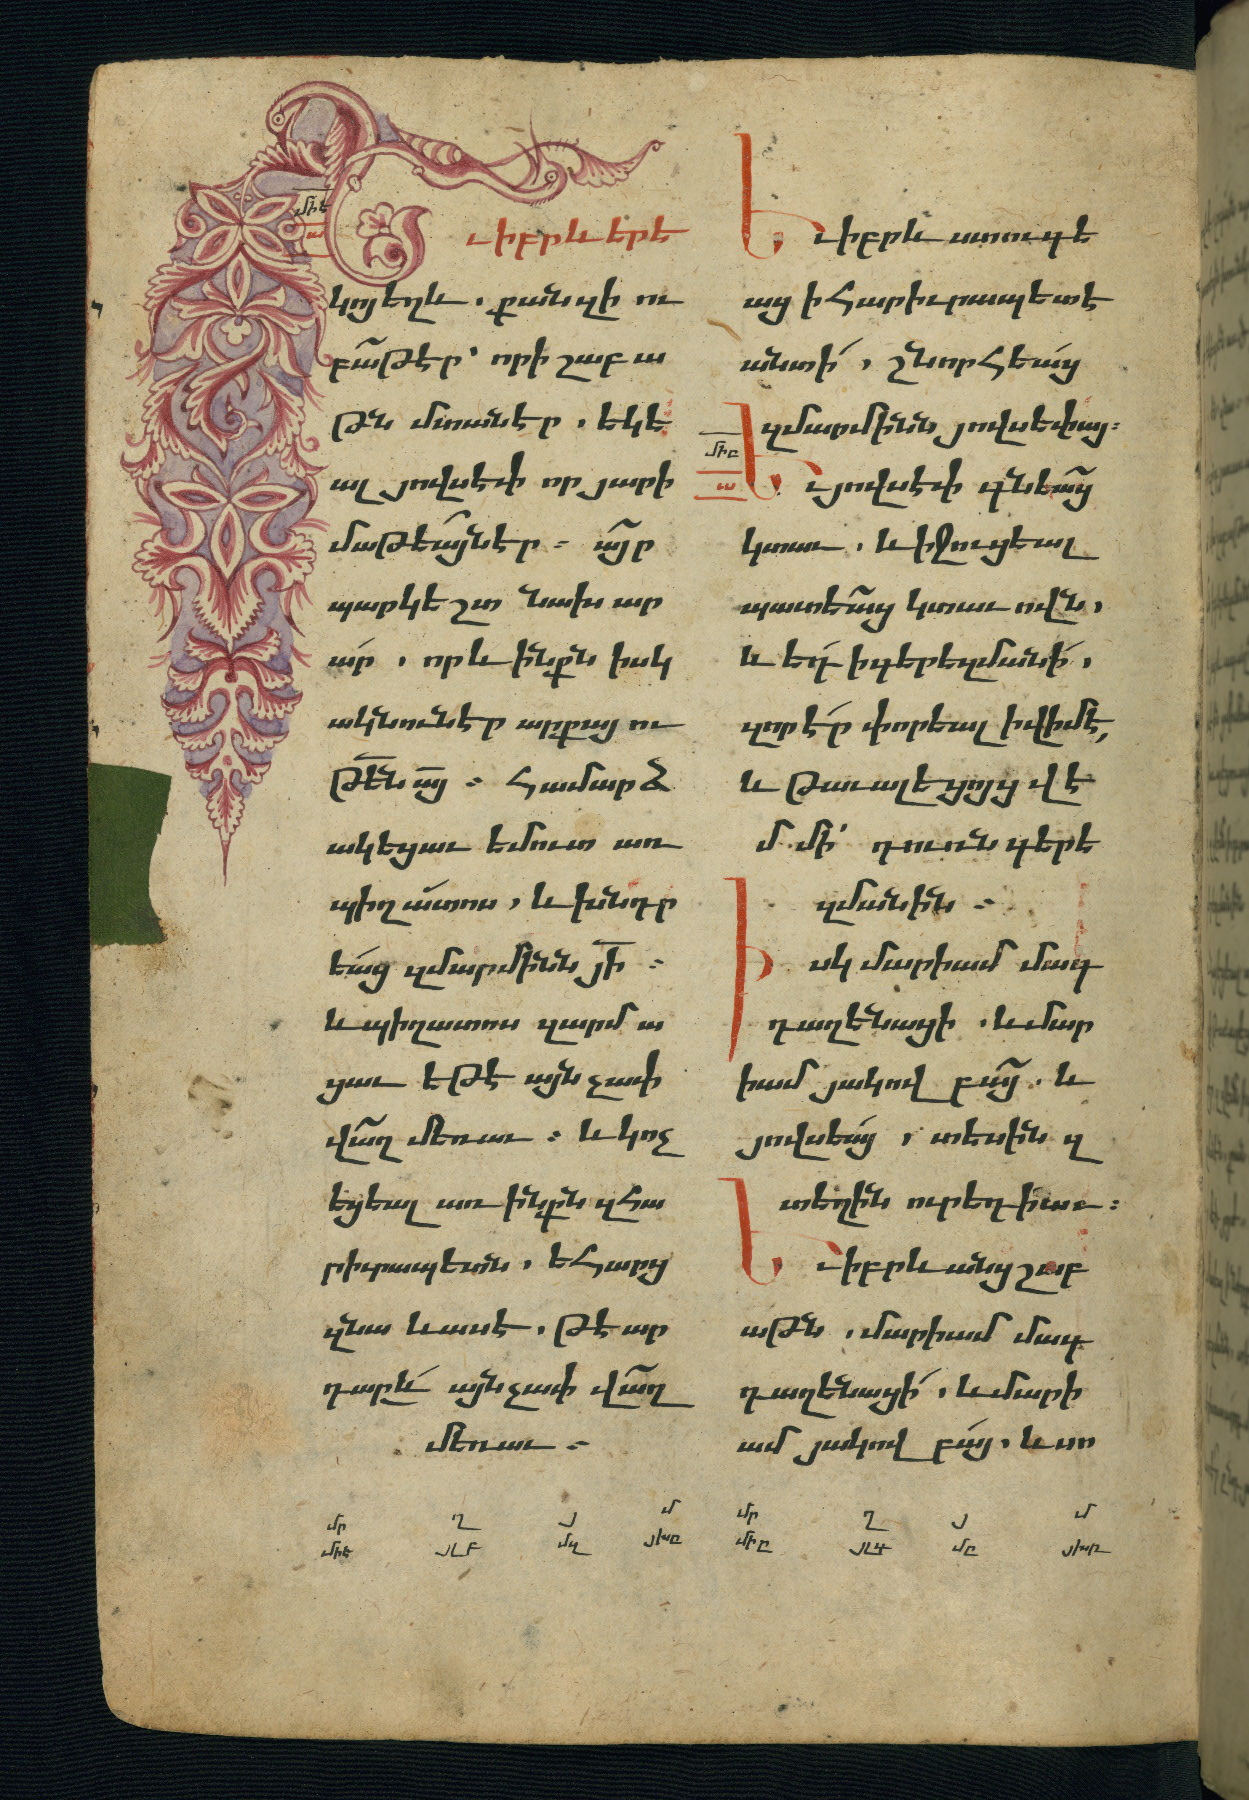 միէ
ա
Եւ իբրև երե
կոյ եղև . քանզի ու
բաթ էր՝ որ ի շաբա
թն մտանէր , եկե
ալ յովսէփ որ յարի
մաթեայ ներ : այր
պարկեշտ նախար
ար , որ և ինքն իսկ
ակն ունէր արքայու
թեն այ : համարձ
ակեցաւ եմուտ առ
պիղատոս , և խնդր
եաց զմարմինն յի :
և պիղատոս զարմա
ցաւ եթէ այնչափ
վաղ մեռաւ : և կոչ
եցեալ առ ինքն զհա
րիւրապետն , եհարց
ցնա և ասէ , թէ ար
դարև այնչափ վաղ
մեռաւ :
Եւ իբրև ստուգե
աց ի հարիւրապետէ
անտի , շնորհեաց
զմարմինն յովսեփայ :
միը
ա
Եւ յովսէփ գնեաց
կտաւ , և իջուցեալ
պատեաց կտաւովն ,
և եդ ի գերեզմանի ,
զոր էր փորեալ ի վիմէ,
և թաւալեցոյց վէ
մ մի՝ դուռն գերե
զմանին :
Իսկ մարիամ մագ
դաղենացի , և մար
իամ յակովբայ , և
յովսեայ , տեսին զ
տեղին ուր եդին :
Եւ իբրև անց շաբ
աթն , մարիամ մագ
դաղենացի , և մարի
ամ յակովբայ , և սո
մր ղ յ մ
մր ղ յ մ